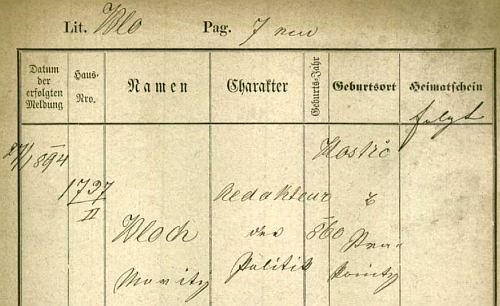 Lit. Wlo Pag. 7 neu
Datum der erfolgten Meldung Haus-Nro. Namen Charakter Geburts-Jahr Geburtsort Heimatschein
folgt
1894 Kostič
1737 Redakteur
II
Wloch der 860
Moritz Politik